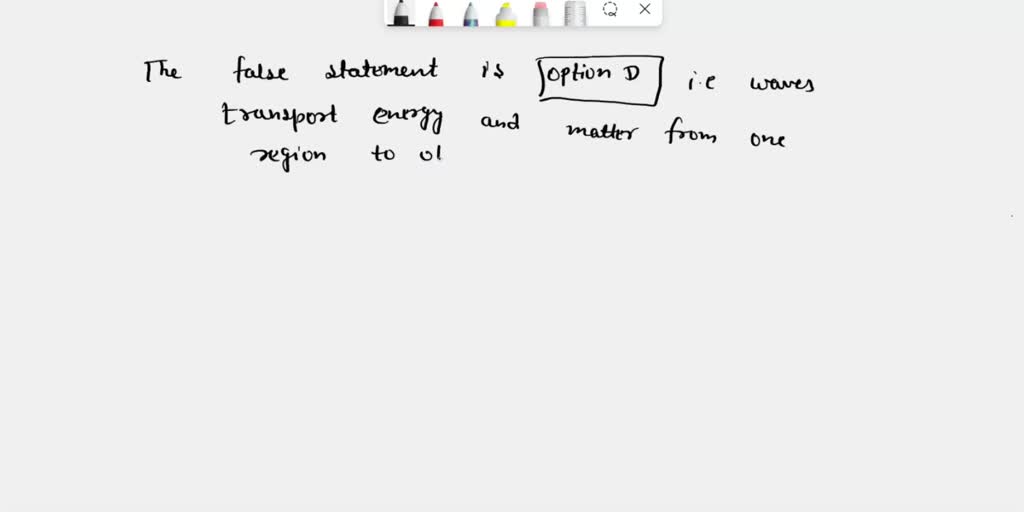 The false statement is option D i.e waves
transport energy and matter from one
region to ol